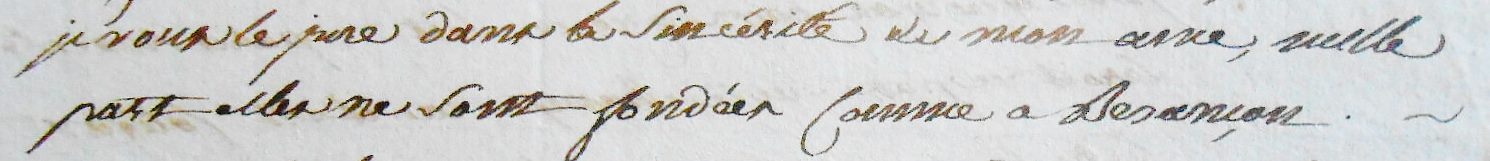 je vous le jure dans la sincérité de mon ame, nulle
part elles ne sont fondées comme a Besançon. ~